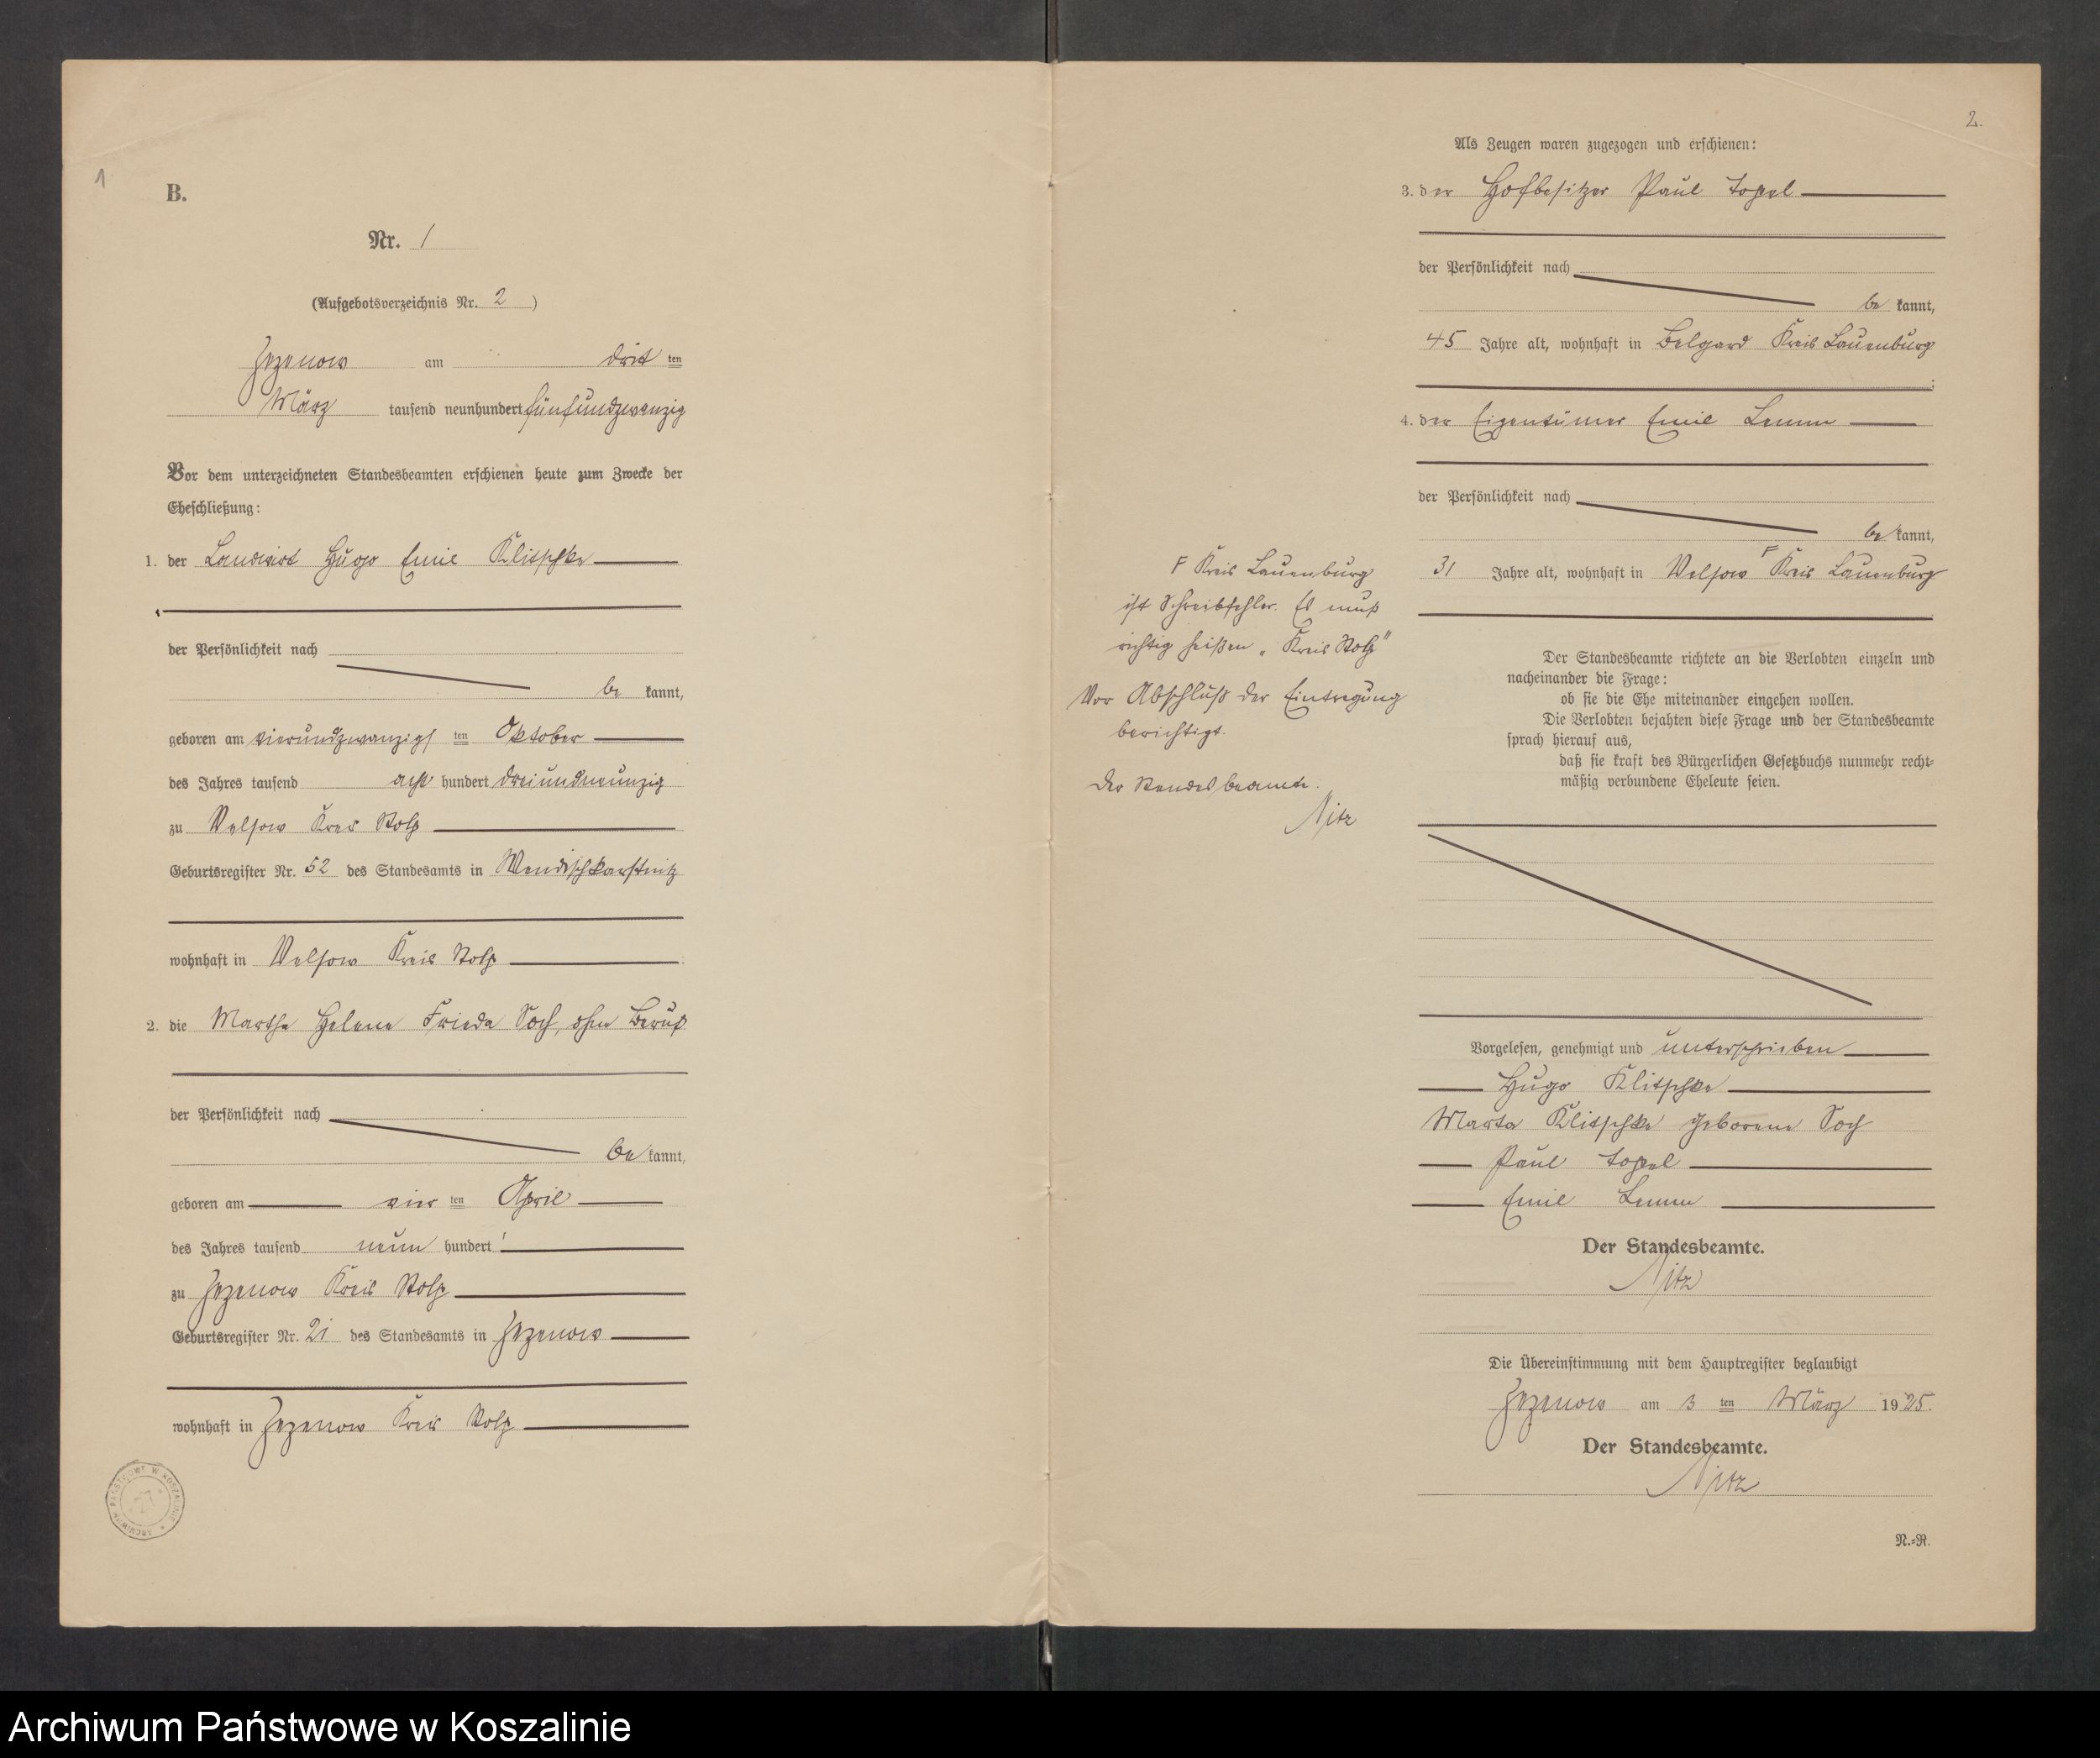 1
B.
Nr. 1
(Aufgebotsverzeichnis Nr. 2)
Zezenow am dritten
März tausend neunhundert fünfundzwanzig
Vor dem unterzeichneten Standesbeamten erschienen heute zum Zwecke der
Eheschließung:
1. der Landwirt Hugo Emil Klitschke
der Persönlichkeit nach
be kannt,
geboren am vierundzwanzigsten Oktober
des Jahres tausend acht hundert dreiundneunzig
zu Velsow Kreis Stolp
Geburtsregister Nr. 52 des Standesamts in Wendischkarstnitz
wohnhaft in Velsow Kreis Stolp
2. die Martha Helene Frieda Soch, ohne Beruf
der Persönlichkeit nach
be kannt,
geboren am vierten April
des Jahres tausend neun hundert
zu Zezenow Kreis Stolp
Geburtsregister Nr. 21 des Standesamts in Zezenow
wohnhaft in Zezenow Kreis Stolp
ARCHIWUM PAŃSTWOWE W KOSZALINIE
27
2.
Als Zeugen waren zugezogen und erschienen:
3. der Hofbesitzer Paul Topel
der Persönlichkeit nach
be kannt,
45 Jahre alt, wohnhaft in Belgard Kreis Lauenburg
4. der Eigentümer Emil Lemm
der Persönlichkeit nach
be kannt,
31 Jahre alt, wohnhaft in Velsow F Kreis Lauenburg
F Kreis Lauenburg
ist Schreibfehler. Es muß
richtig heißen „Kreis Stolp"
Vor Abschluß der Eintragung
berichtigt.
Der Standesbeamte.
Nitz
Der Standesbeamte richtete an die Verlobten einzeln und
nacheinander die Frage:
ob sie die Ehe miteinander eingehen wollen.
Die Verlobten bejahten diese Frage und der Standesbeamte
sprach hierauf aus,
daß sie kraft des Bürgerlichen Gesetzbuchs nunmehr recht-
mäßig verbundene Eheleute seien.
Vorgelesen, genehmigt und unterschrieben
Hugo Klitschke
Marta Klitschke geborene Soch
Paul Topel
Emil Lemm
Der Standesbeamte.
Nitz
Die Übereinstimmung mit dem Hauptregister beglaubigt
Zezenow am 3 ten März 1925.
Der Standesbeamte.
Nitz
N.-R.
Archiwum Państwowe w Koszalinie